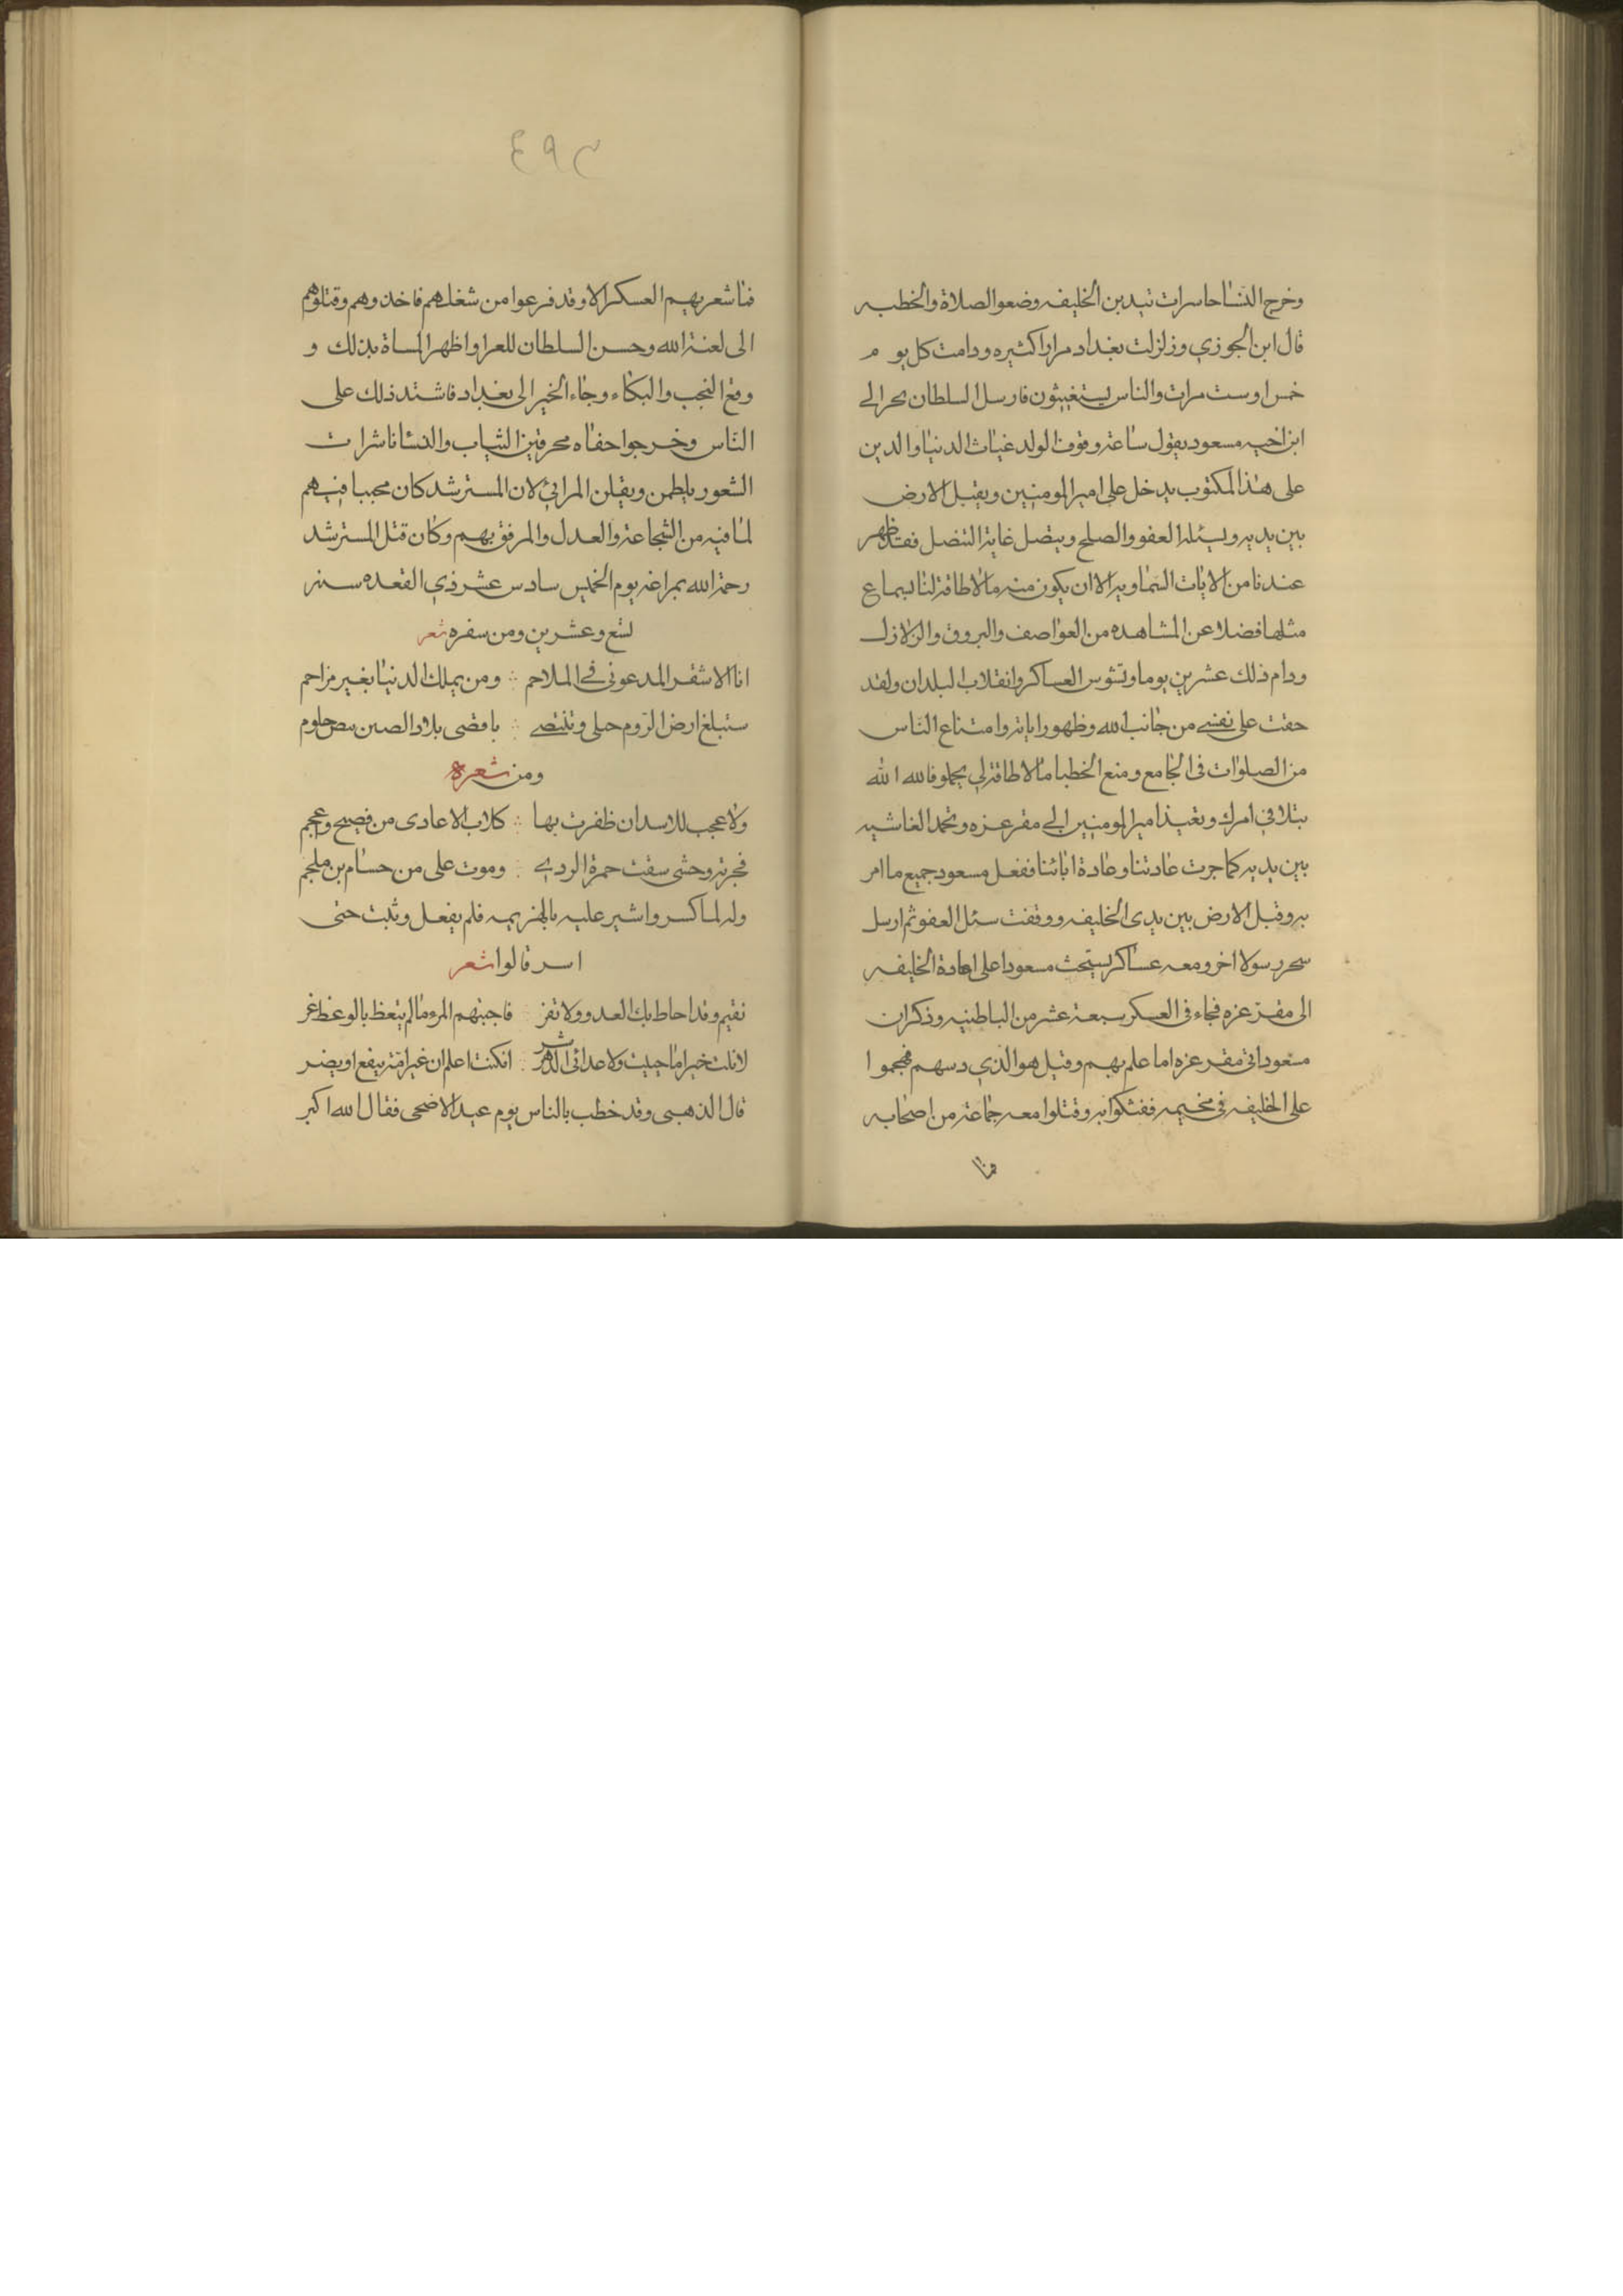 وخرج النسا حاسرات تيدبن الخليفه وضعوا الصلاة والخطبه
قال ابن الجوزي وزلزلت بغداد مرارا كثيره ودامت كل يوم
خمس اوست مرات والناس يستغيثون فارسل السلطان سحر الي
ابن اخيه مسعود يقول ساعة وقوف الولد غياث الدنيا والدين
على هذا المكتوب يدخل على امير المومنين ويقبل الارض
بين يديه ويسئله العفو والصلح ويتضل غاية التنضل فقد ظهر
عندنا من الايات السماويه الا ان يكون منه مالا طاقة لنا بسماع
مثلها فضلا عن المشاهده من العواصف والبروق والزلازل
ودام ذلك عشرين يوما وتشوس العساكر وانقلاب البلدان ولقد
حفت على نفسي من جانب الله وظهور اياته وامتناع الناس
من الصلوات في الجامع ومنع الخطبا مالا طاقة لي بحملو فالله الله
بتلافي امرك وتعيد امير المومنين الي مقر عزه وتحمد الغاشيه
بين يديه كما جرت عادتنا وعادة ابائنا ففعل مسعود جميع ما امر
به وقبل الارض بين يدى الخليفه ووقفت سئل العفو ثم ارسل
سحر رسولا اخر ومعه عساكر يستحث مسعودا على اعادة الخليفه
الى مقر عزه فجاء في العسكر سبعة عشر من الباطنيه وذكر ان
مسعود اتى مقر عزه اما علم بهم وقيل هو الذي دسهم فهجموا
على الخليفه في مخيمه ففتكوا به وقتلوا معه جماعة من اصحابه
فما
٤٩٣
فما شعر بهم العسكر الا وقد فرعوا من شغلهم فاخدوهم وقتلوهم
الى لعنة الله وحسن السلطان للعرا واظهر المساة بذلك و
وقع النحب والبكاء وجاء الخبر الى بغداد فاشتد ذلك على
الناس وخرجوا حفاه محرقين الثياب والنسا ناشرات
الشعور يلطمن ويقلن المراثي لان المسترشد كان محببا فيهم
لما فيه من الشجاعة والعدل والمرفق بهم وكان قتل المسترشد
رحمة الله بمراغه يوم الخميس سادس عشر ذي القعده سنه
تسع وعشرين ومن سفره شعر
انا الاشقر المدعونى في الملاحم ∴ ومن يملك الدنيا بغير مزاحم
ستبلغ ارض الروم حيلى وتنتضي ∴ باقضى بلاد الصين بيض حلوم
ومن شعره
ولا عجب للاسد ان ظفرت بها ∴ كلاب الاعادى من فصيح وعجم
فجربة وحشى سقت حمزة الردي ∴ وموت على من حسام بن ملجم
وله لما كسر واشير عليه بالهزيمه فلم يفعل وثبت حتى
اسر قالوا شعر
نقيم وقد احاط بك العدو ولا تفر ∴ فاجبتهم المرء ما لم يتعظ بالوعظ غر
لا نلت خيرا ما حييت ولا عدانى الدهر شر ∴ ان كنت اعلم ان غير الله ينفع او يضر
قال الذهبى وقد خطب بالناس يوم عيد الاضحى فقال الله اكبر